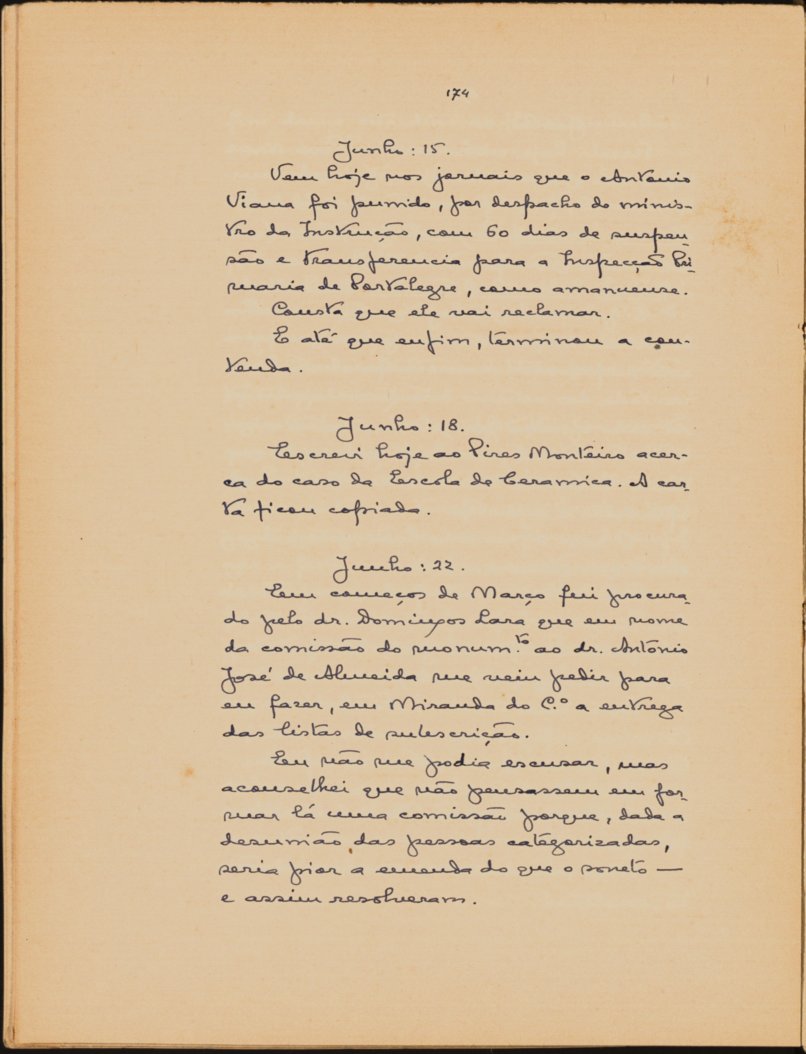 174
Junho: 15.
Vem hoje nos jornais que o António
Viana foi punido, por despacho do minis-
tro da Instrução, com 60 dias de suspen-
são e transferencia para a Inspecção Pri-
maria de Portalegre, como amanuense.
Consta que ele vai reclamar.
E até que enfim, terminou a con-
tenda.
Junho: 18.
Escrevi hoje ao Pires Monteiro acer-
ca do caso da Escola de Ceramica. A car-
ta ficou copiada.
Junho: 22.
Em começos de Março fui procura-
do pelo dr. Domingos Lara que em nome
da comissão do monum.to ao dr. António
José de Almeida me veiu pedir para
eu fazer, em Miranda do C.º a entrega
das listas de subscrição.
Eu não me podia escusar, mas
aconselhei que não pensassem em for-
mar lá uma comissão porque, dada a
desunião das pessoas categorizadas,
seria pior a emenda do que o soneto —
e assim resolveram.